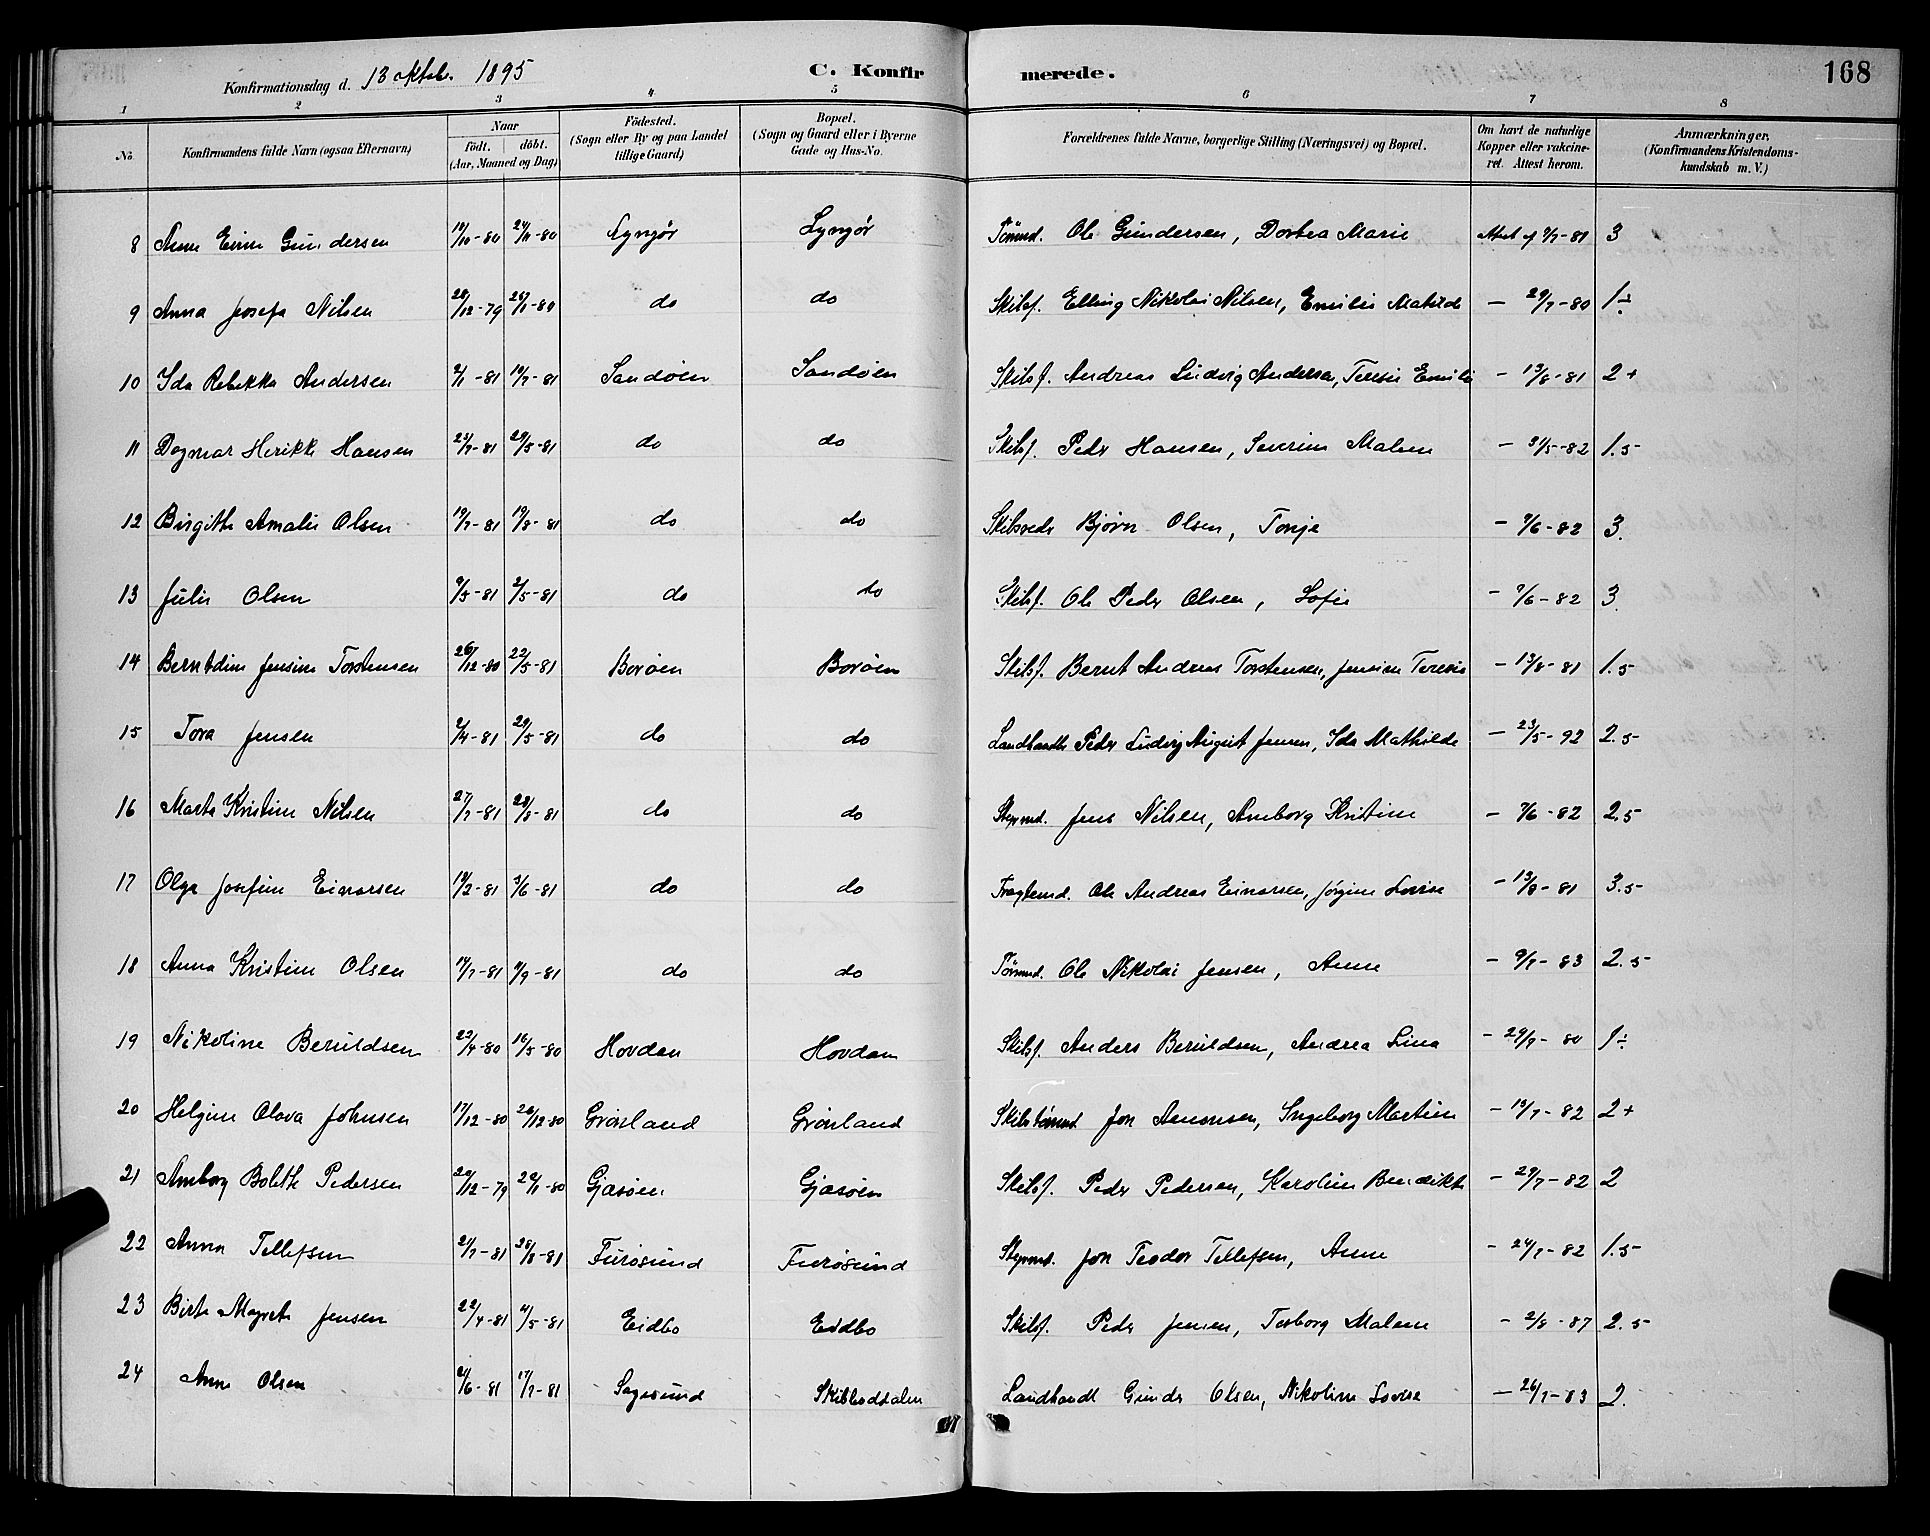 Konfirmationsdag d. 13 oktob. 1895 C. Konfirmerede. 168
1 2 3 4 5 6 7 8
No. Konfirmandens fulde Navn (ogsaa Efternavn) Naar födt. döbt. (Aar, Maaned og Dag) Födested. (Sogn eller By og paa Landet tillige Gaard) Bopæl. (Sogn og Gaard eller i Byerne Gade og Hus-No. Forældrenes fulde Navne, borgerlige Stilling (Næringsvei) og Bopæl. Om havt de naturlige Kopper eller vakcineret. Attest herom. Anmærkninger. (Konfirmandens Kristendomskundskab m. V.)
8 Anne Gundersen /10-80 24/11-80 Lyngør Lyngør Tømmd. Ole Gundersen, Dortea Marie Attest af /7-81 3
9 Anna Josefa Nilsen 28/12-79 26/1-80 do do Skibsf. Elling Nikolai Nilsen, Emilie Matilde — 29/7-80 1÷
10 Ida Rebekka Andersen /1-81 /7-81 Sandøen Sandøen Skibsf. Andreas Ludvig Andersen, Teresie Emilie — 13/8-81 2+
11 Dagmar Henrikke Hansen 23/3-81 29/5-81 do do Skibsf. Peder Hansen, Severine Malene — 31/5-82 1.5
12 Birgithe Amalie Olsen 19/7-81 19/8-81 do do Skibsreder Bjørn Olsen, Tonje — 7/6-82 3.
13 Julie Olsen /3-81 2/5-81 do do Skibsf. Ole Peder Olsen, Sofie — 7/6-82 3.
14 Berntdine Jensine Torstensen 26/12-80 22/5-81 Borøen Borøen Skibsf. Bernt Andreas Torstensen, Jensine Teresie — 13/8-81 1.5
15 Tora Jensen 2/4-81 29/5-81 do do Landhandler Peder Ludvig August Jensen, Ida Mathilde — 23/5-92 2.5
16 Marte Kristine Nilsen 27/7-81 28/8-81 do do Styrmd. Jens Nilsen, Anborg Kristine — 7/6-82 2.5
17 Olga Josefine Einarsen 14/2-81 3/6-81 do do Fragtemd. Ole Andreas Einarsen, Jørgine Lovise — 13/8-81 3.5
18 Anna Kristine Olsen 14/7-81 /9-81 do do Tømmd. Ole Nikolai Jensen, Anne — 9/7-83 2.5
19 Nikoline Beruldsen 22/4-80 16/5-80 Hovdan Hovdan Skibsf. Anders Beruldsen, Andrea Lina — 29/9-80 1÷
20 Helgine Olava Johnsen 17/12-80 26/12-80 Grønland Grønland Skibstømmd Jon Aanonsen, Ingeborg Martine — 13/7-82 2+
21 Anborg Bolette Pedersen 20/12-79 20/1-80 Gjæsøen Gjæsøen Skibsf. Peder Pedersen, Karoline Benedikte — 29/7-82 2
22 Anna Tellefsen 21/7-81 28/8-81 Furøsund Furøsund Styrmd. Jon Teodor Tellefsen, Anne — 24/7-82 1.5
23 Birte Magrete Jensen 22/4-81 4/5-81 Eidbo Eidbo Skibsf. Peder Jensen, Torborg Malene — 2/8-87 2.5
24 Anne Olsen 21/6-81 17/7-81 Sagesund Skibboddalen Landhandl Gunder Olsen, Nikoline Lovise — 26/7-83 2.